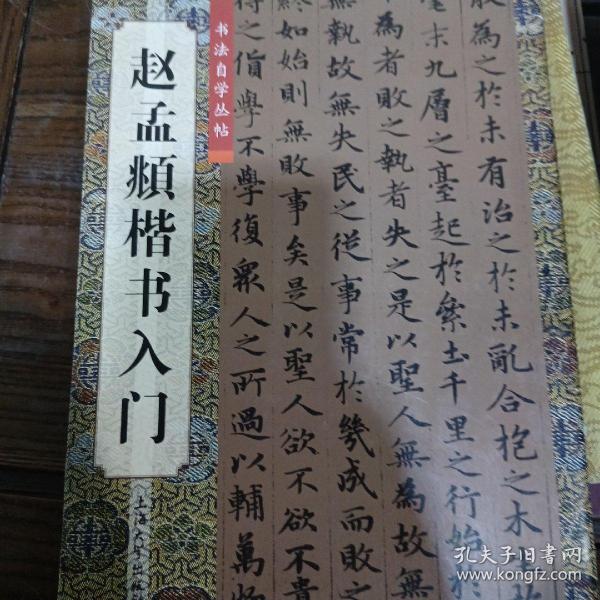 书法自学丛帖
赵孟頫楷书入门
上海大学出版
為之於未有治之於未亂合抱之木
末九層之臺起於絫土千里之行始於
為者敗之執者失之是以聖人無為故無
無執故無失民之從事常於幾成而敗之
終如始則無敗事矣是以聖人欲不欲不貴
得之貨學不學復眾人之所過以輔萬物
孔夫子旧书网
www.kongfz.com